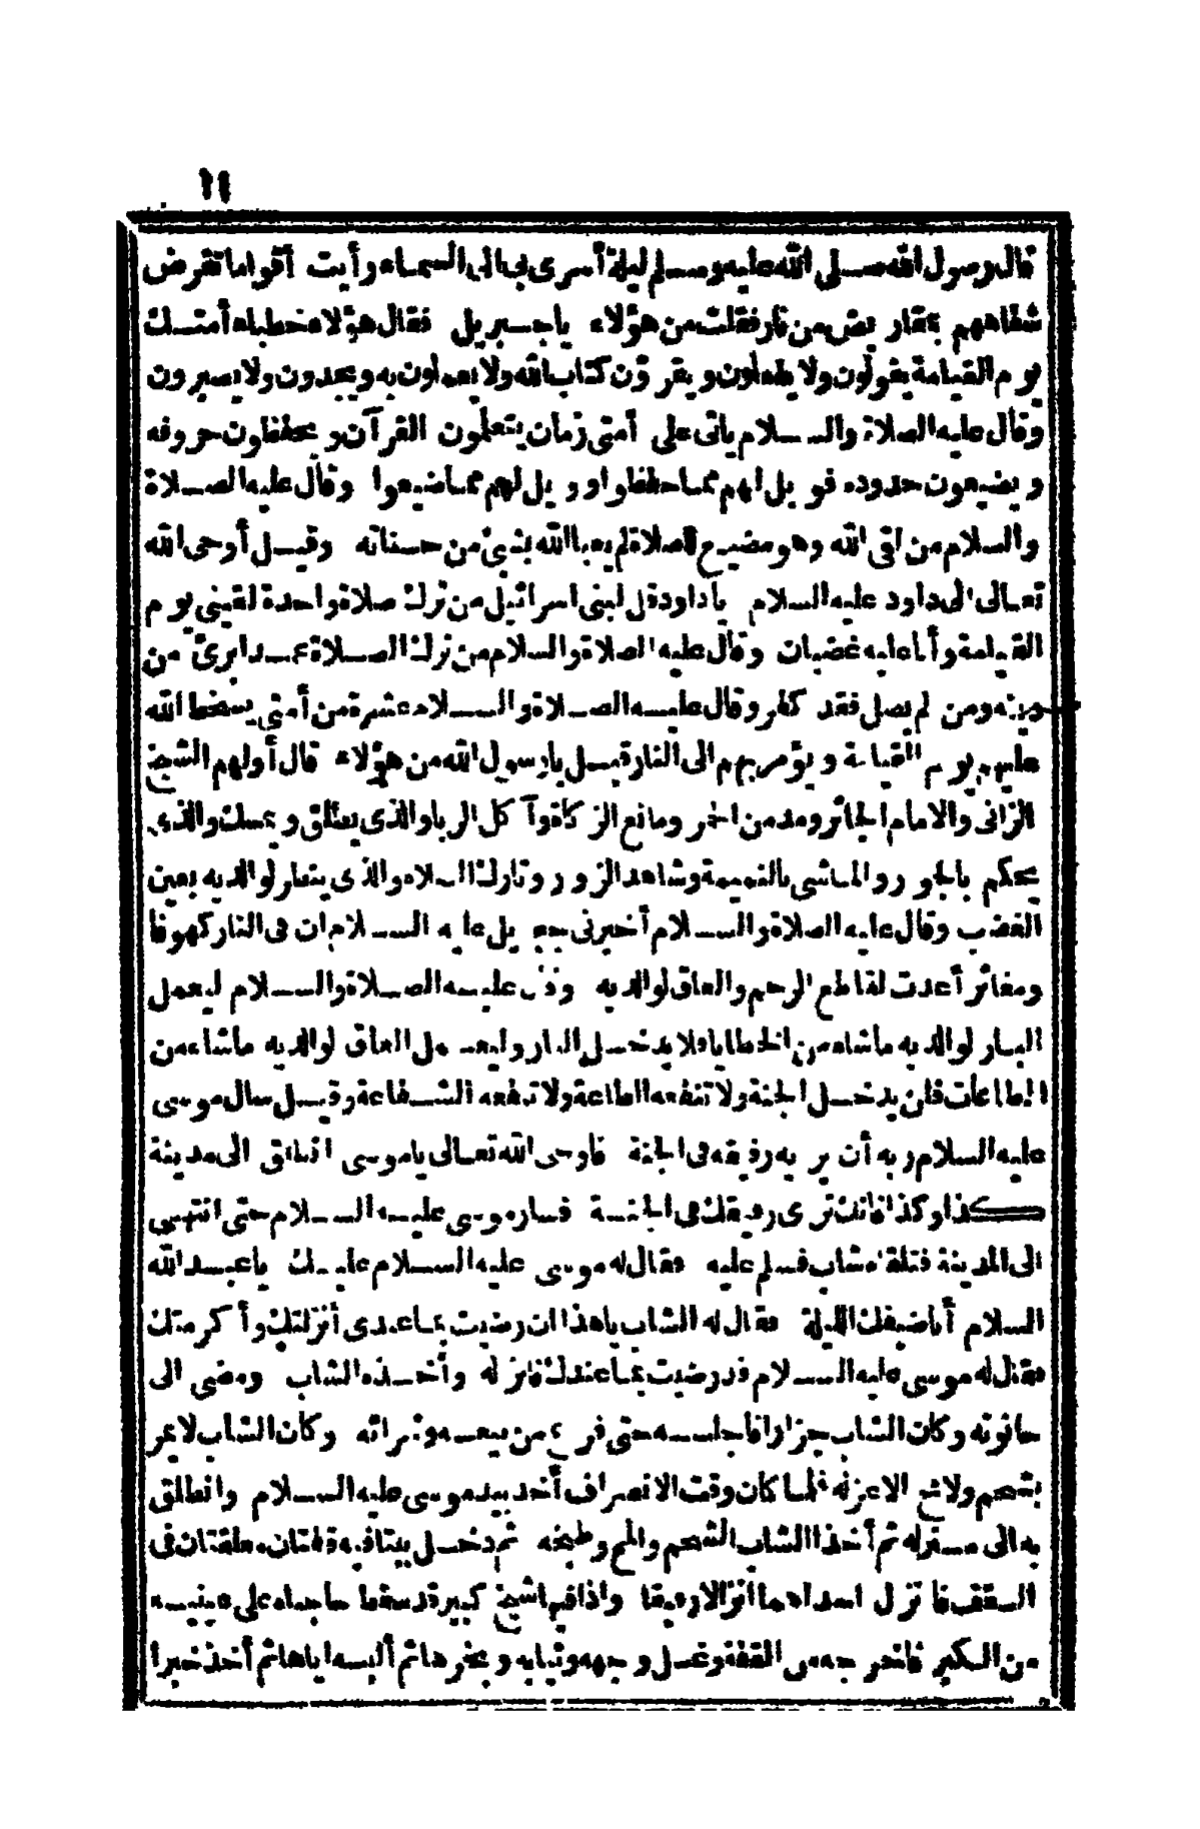 ١١
قال رسول الله صلى الله عليه وسلم ليلة أسرى بى الى السماء رأيت أقواما تقرض
شفاههم بمقاريض من نار فقلت من هؤلاء ياجبريل فقال هؤلاء خطباء أمتك
يوم القيامة يقولون ولا يفعلون ويقرؤن كتاب الله ولا يعملون به ويجدون ولا يصبرون
وقال عليه الصلاة والسلام يأتى على أمتى زمان يتعلمون القرآن ويحفظون حروفه
ويضيعون حدوده فويل لهم مما حفظوا وويل لهم مما ضيعوا وقال عليه الصلاة
والسلام من اتى الله وهو مضيع للصلاة لم يعبا الله بشئ من حسناته وقيل أوحى الله
تعالى الى داود عليه السلام ياداود قل لبنى اسرائيل من ترك صلاة واحدة لقينى يوم
القيامة وأنا عليه غضبان وقال عليه الصلاة والسلام من ترك الصلاة عمدا برئ من
دينه ومن لم يصل فقد كفر وقال عليه الصلاة والسلام عشرة من أمتى يسخط الله
عليهم يوم القيامة ويؤمر بهم الى النار قيل يارسول الله من هؤلاء قال أولهم الشيخ
الزانى والامام الجائر ومدمن الخمر ومانع الزكاة وآكل الربا والذى يطلق ويمسك والذى
يحكم بالجور والماشى بالنميمة وشاهد الزور وتارك الصلاة والذى ينظر لوالديه بعين
الغضب وقال عليه الصلاة والسلام أخبرنى جبريل عليه السلام ان فى النار كهوفا
ومغائر أعدت لقاطع الرحم والعاق لوالديه وقال عليه الصلاة والسلام ليعمل
البار لوالديه ماشاء من الخطايا فلا يدخل النار وليعمل العاق لوالديه ماشاء من
الطاعات فلن يدخل الجنة ولا تنفعه الطاعة ولا تنفعه الشفاعة وقيل سأل موسى
عليه السلام ربه أن يريه رفيقه فى الجنة فاوحى الله تعالى ياموسى انطلق الى مدينة
كذا وكذا فانك ترى رفيقك فى الجنة فسار موسى عليه السلام حتى انتهى
الى المدينة فتلقاه شاب فسلم عليه فقال له موسى عليه السلام عليك ياعبد الله
السلام أنا ضيفك الليلة فقال له الشاب ياهذا ان رضيت بما عندى أنزلتك وأكرمتك
فقال له موسى عليه السلام قد رضيت بما عندك فانزله وأخذه الشاب ومضى الى
حانوته وكان الشاب جزارا فأجلسه حتى فرغ من بيعه وشرائه وكان الشاب لايمر
بشحم ولا مخ الا عزله فلما كان وقت الانصراف أخذ بيد موسى عليه السلام وانطلق
به الى منزله ثم أخذ الشاب الشحم والمخ وطبخه ثم دخل بيتا فيه قفتان معلقتان فى
السقف فانزل احداهما انزالا رفيقا واذا فيها شيخ كبير قد سقط حاجباه على عينيه
من الكبر فاخرجه من القفة وغسل وجهه وثيابه وبخرها ثم ألبسه اياها ثم أخذ خبزا